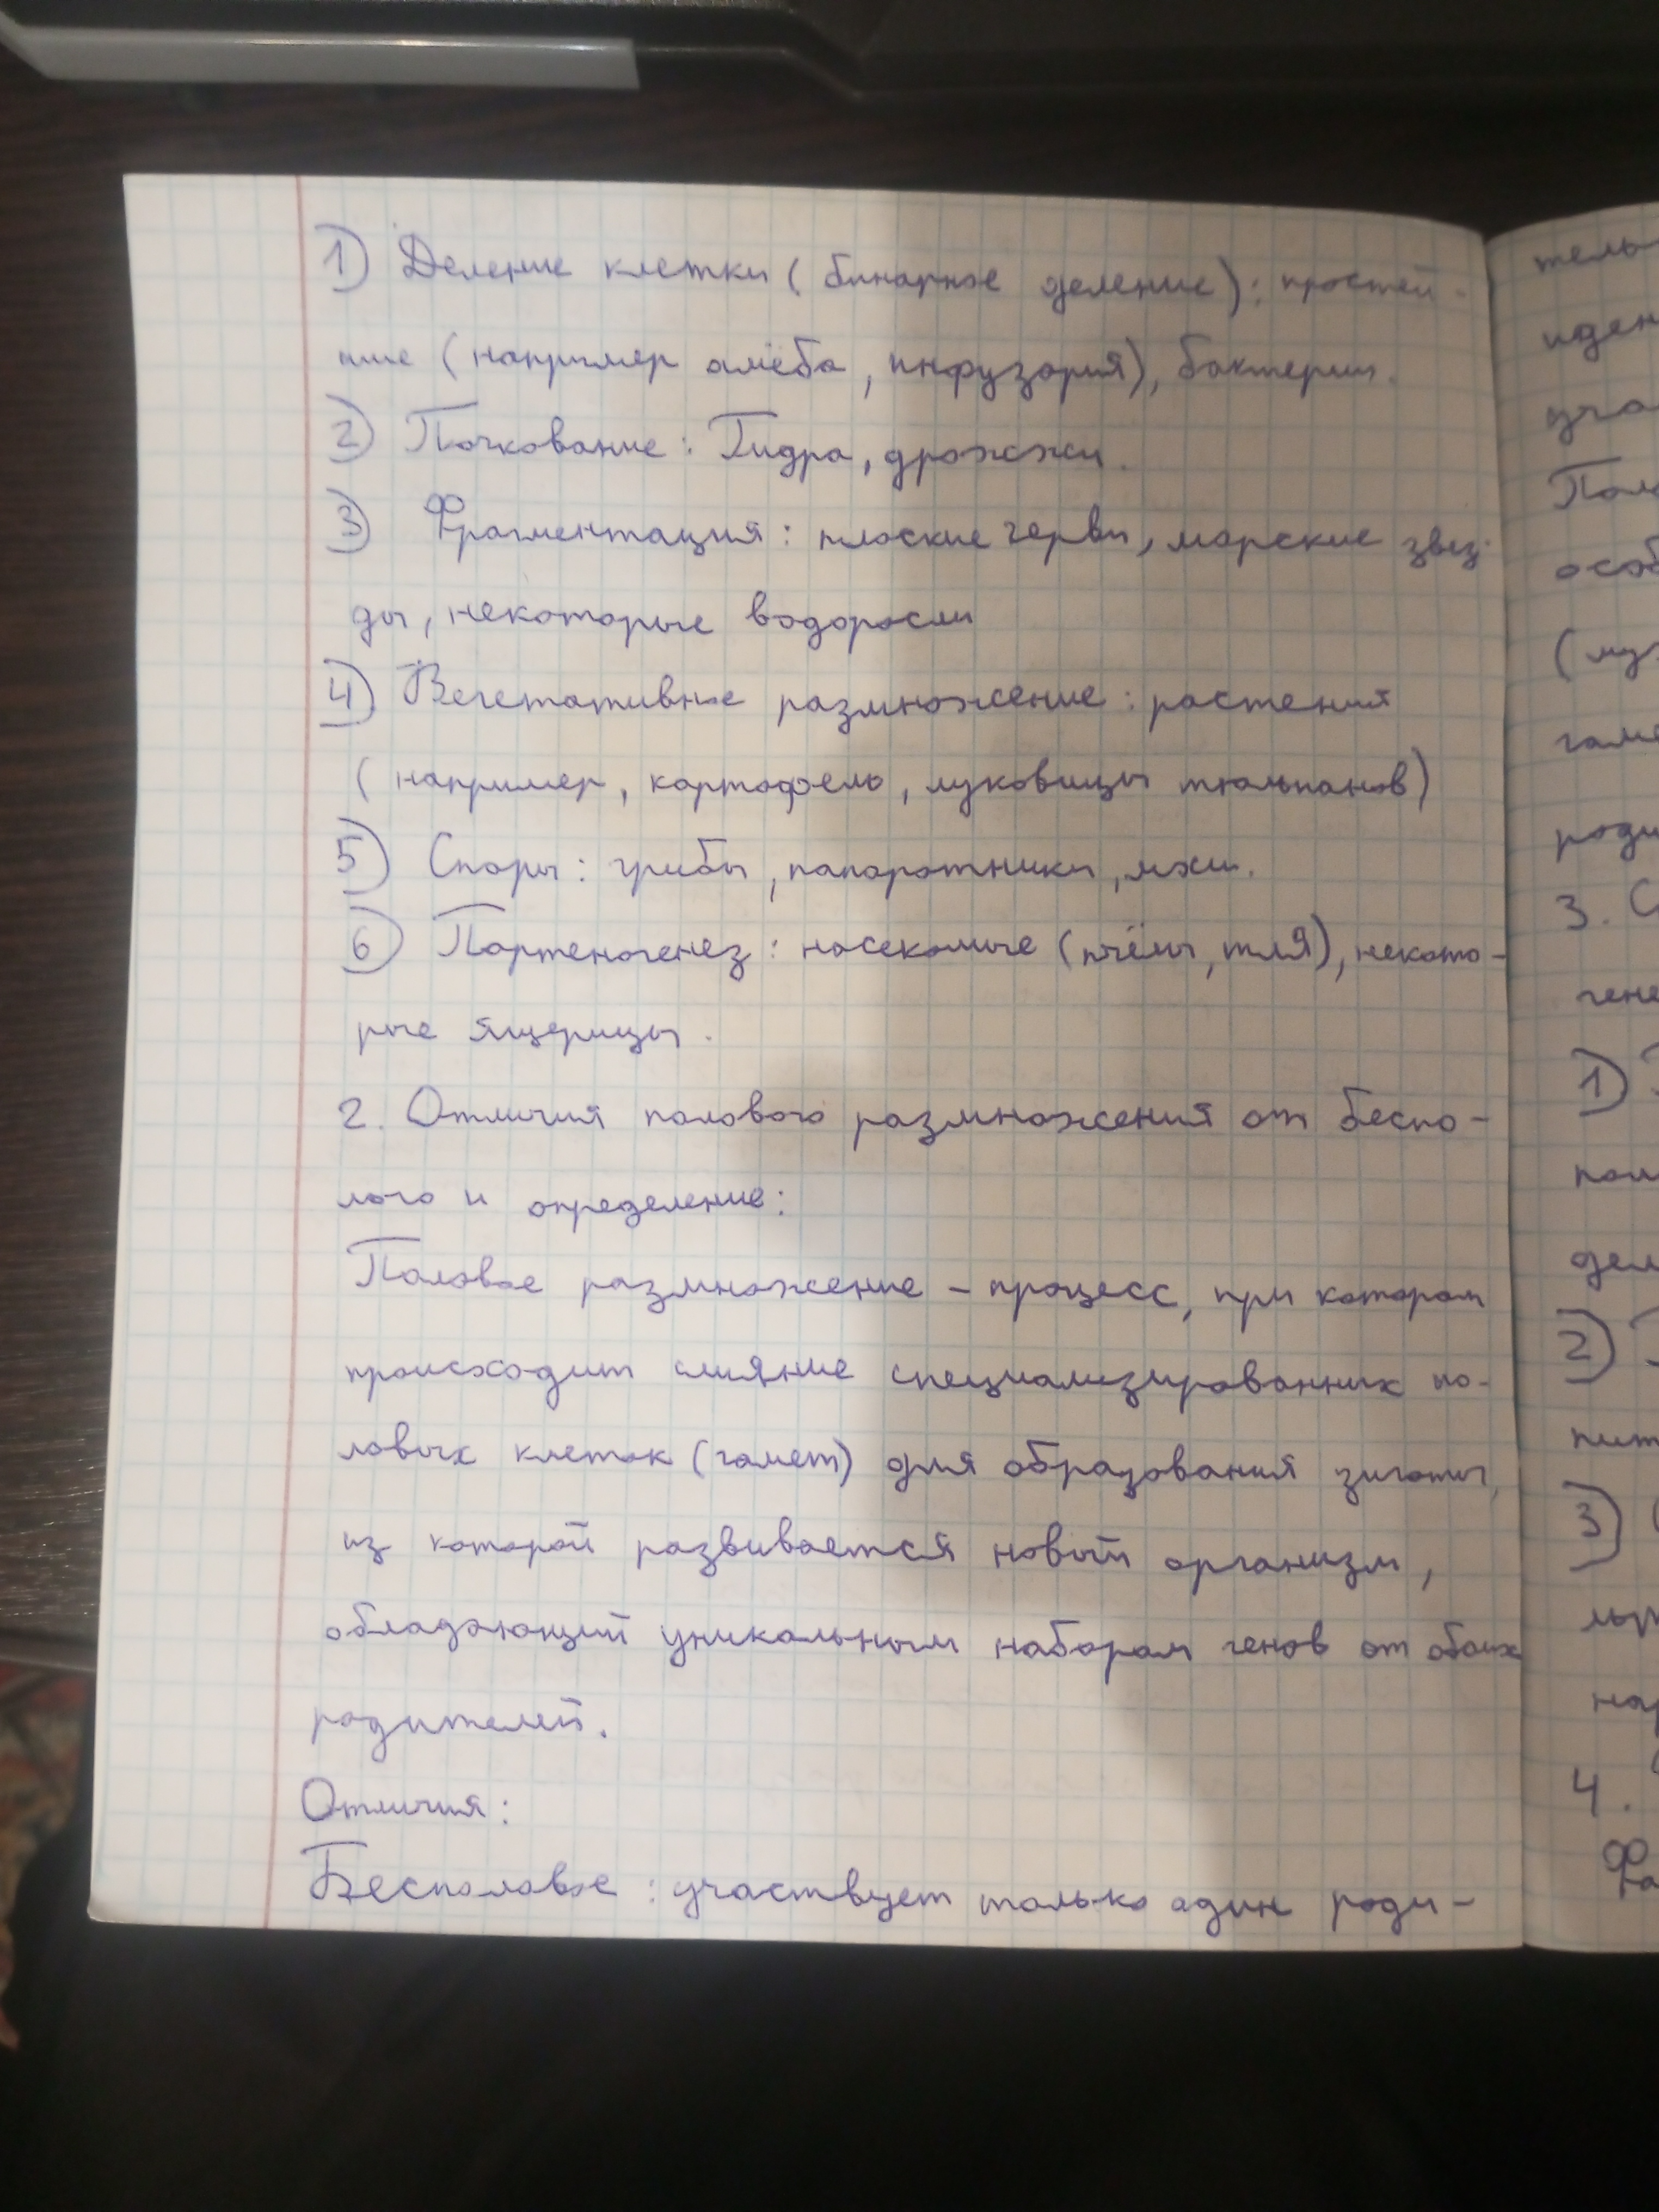 1) Деление клетки (бинарное деление): простей-
шие (например амёба, инфузория), бактерии.
2) Почкование: Гидра, дрожжи.
3) Фрагментация: плоские черви, морские звез-
ды, некоторые водоросли
4) Вегетативное размножение: растения
(например, картофель, луковицы тюльпанов)
5) Споры: грибы, папоротники, мхи.
6) Партеногенез: насекомые (пчёлы, тля), некото-
рые ящерицы.
2. Отличия полового размножения от беспо-
лого и определение:
Половое размножение - процесс, при котором
происходит слияние специализированных по-
ловых клеток (гамет) для образования зиготы,
из которой развивается новый организм,
обладающий уникальным набором генов от обоих
родителей.
Отличия:
Бесполовое: участвует только один роди-
тель
иден
уча
Поло
особ
(му
гаме
роди
3. С
гене
1)
пол
дел
2)
пит
3)
нар
4.
Фа